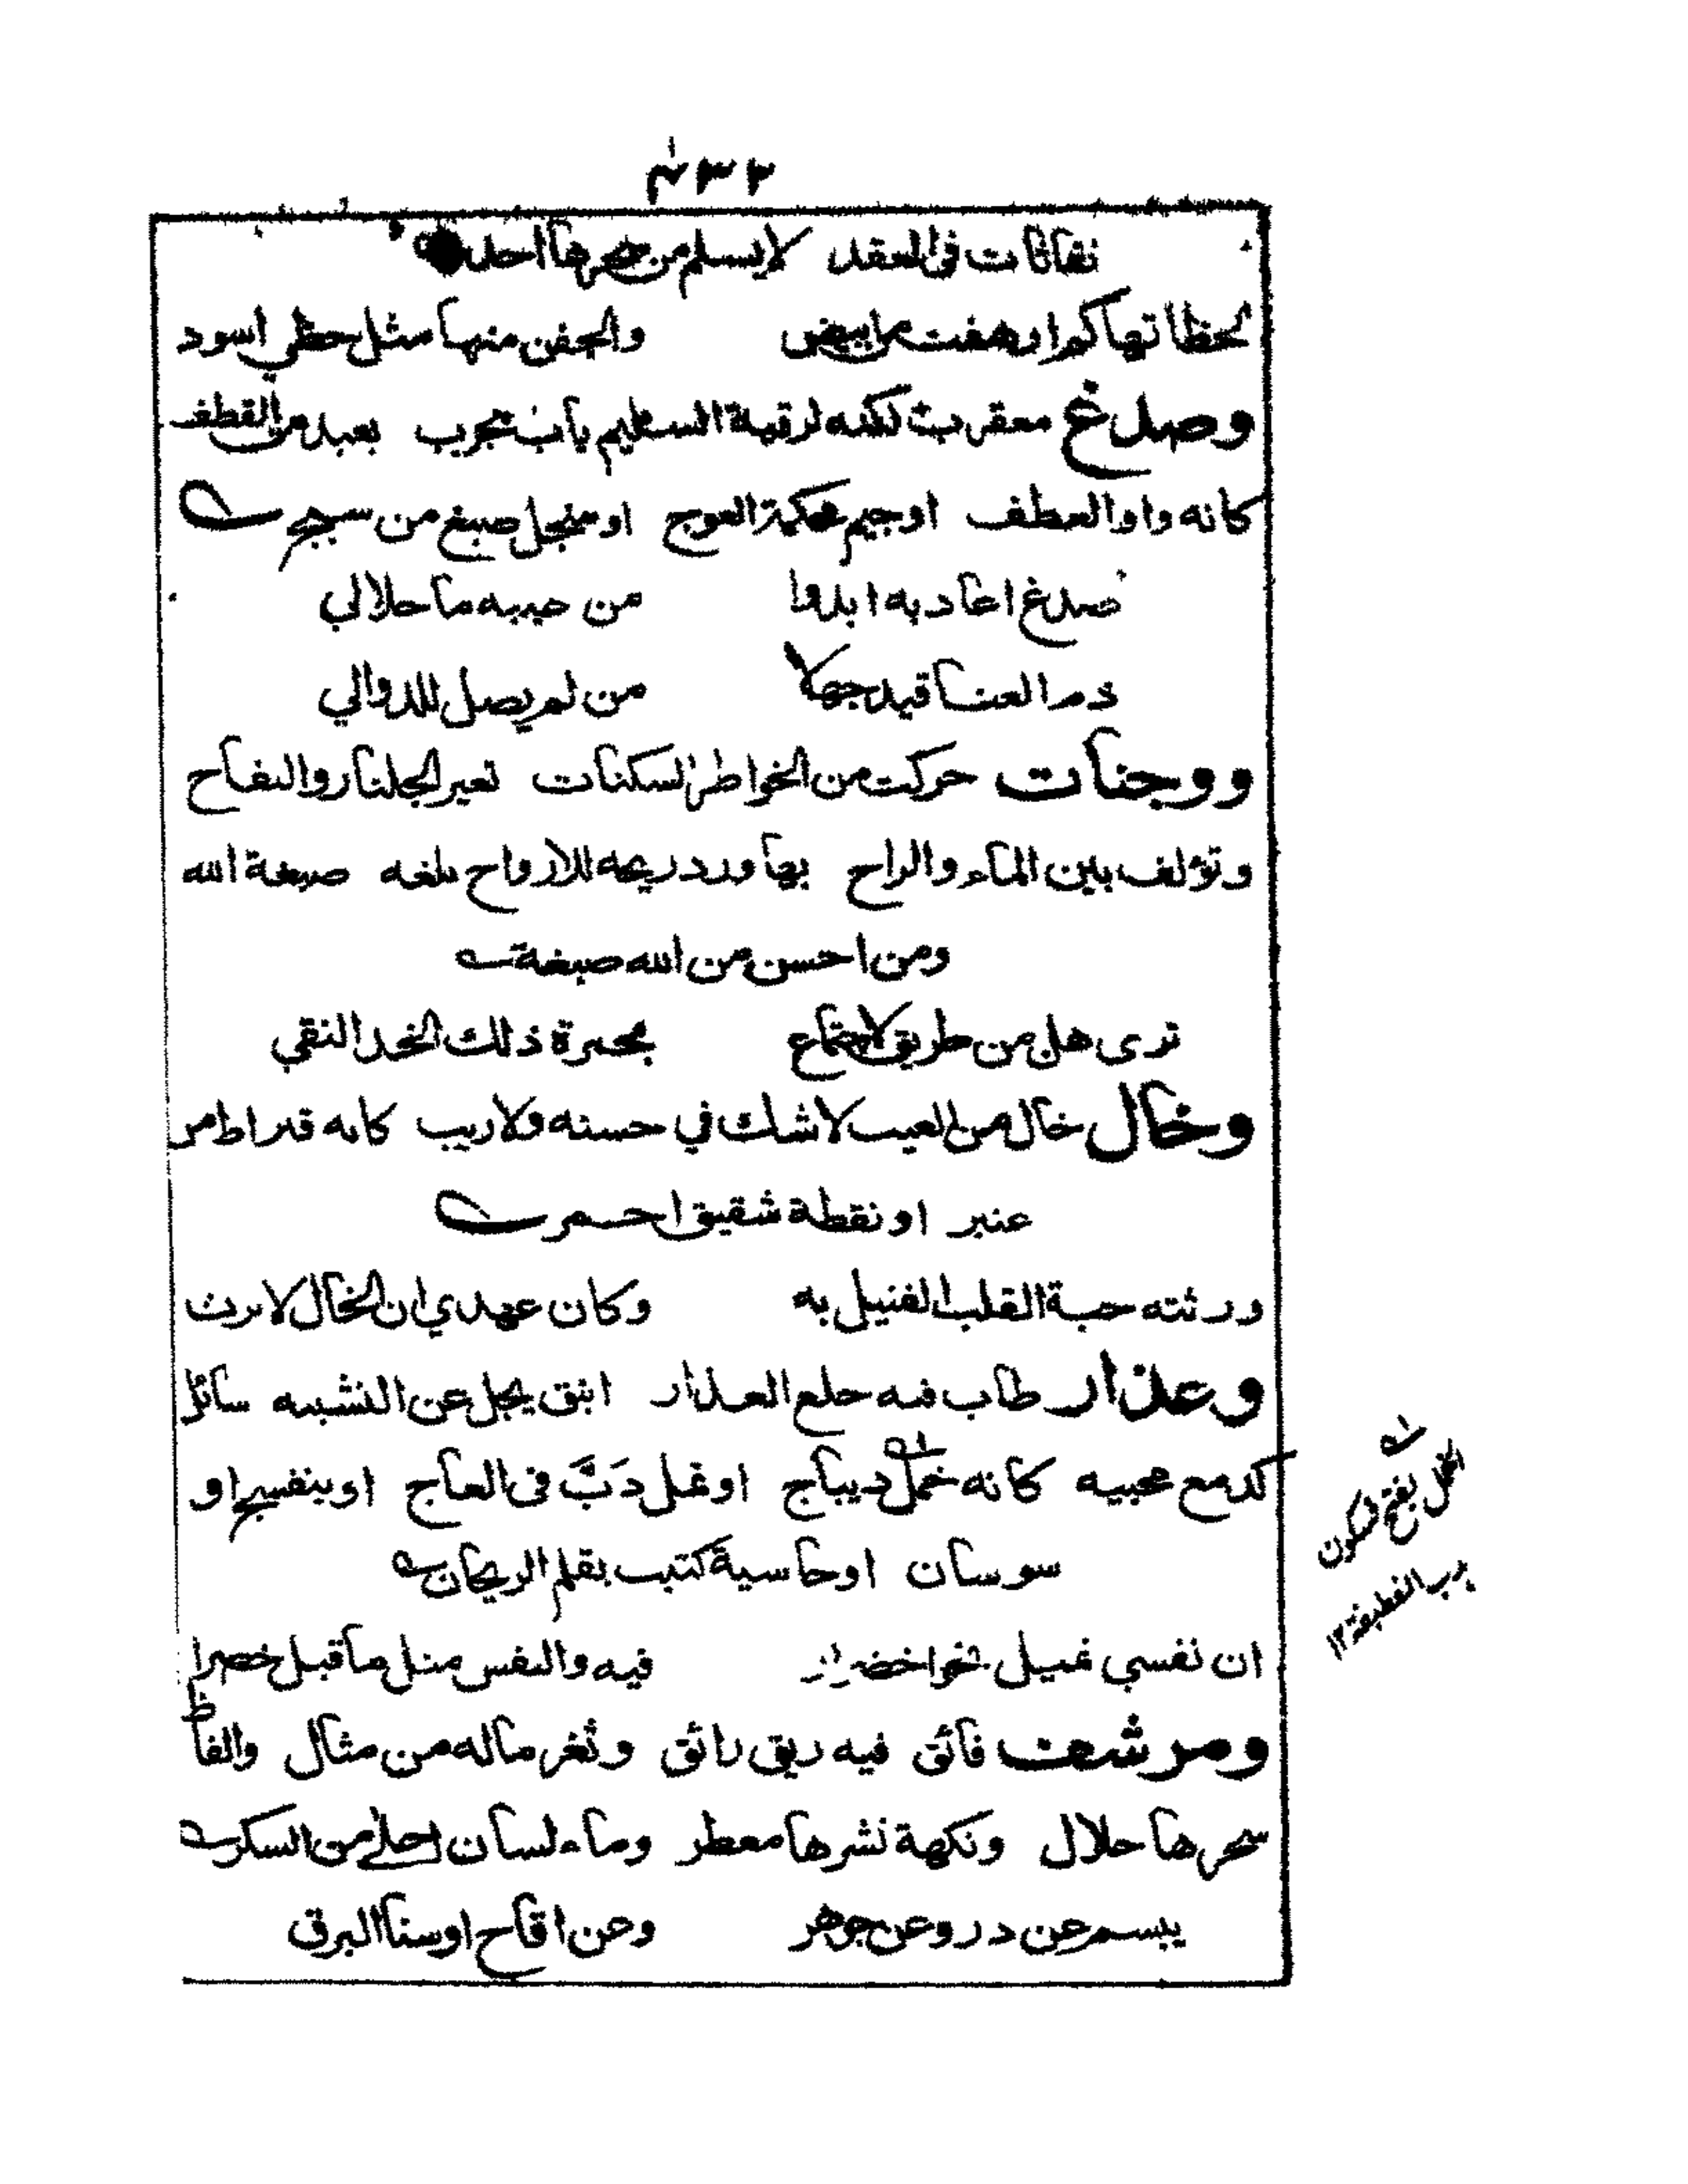 ٣٣٤
نفاثات في العقد لا يسلم من سحرها احد
لحظاتها كم ارهفت من ابيض والجفن منها مثل حظي اسود
وصدغ معقرب لكنه لرقية السليم يأب تجرب بعبد من القطف
كانه واو العطف او جيم محكمة العوج او منجل صبغ من سبج
صدغ اعاد به ابدوا من حبه ما حلا لي
ذم العناقيد جهلا من لم يصل للدوالي
ووجنات حركت من الخواطر السكنات تعير الجلنار والتفاح
وتؤلف بين الماء والراح بها ورد ريحه للارواح بلغه صبغة الله
ومن احسن من الله صبغة
ترى هل من طريق لاجتماع بحمرة ذلك الخد النقي
وخال خال من العيب لا شك في حسنه ولا ريب كانه قيراط من
عنبر او نقطة شقيق احمر
ورثته حبة القلب القتيل به وكان عهدي ان الخال لا يرث
وعذار طاب فيه خلع العذار انبق يجل عن التشبيه سائل
كدمع محبيه كانه خمل ديباج او نمل دَبَّ في العاج او بنفسج او
سوسان او حاسية كتبت بقلم الريحان
ان نفسي تميل نحو اخضرار فيه والنفس مثل ما قيل خضرا
ومرشف فائق فيه ريق رائق وثغر ماله من مثال والفاظ
سحرها حلال ونكهة نشرها معطر وماء لسان احلى من السكر
يبسم عن در وعن جوهر وعن اقاح او سنا البرق
الخمل بفتح فسكون
هدب القطيفة ١٢